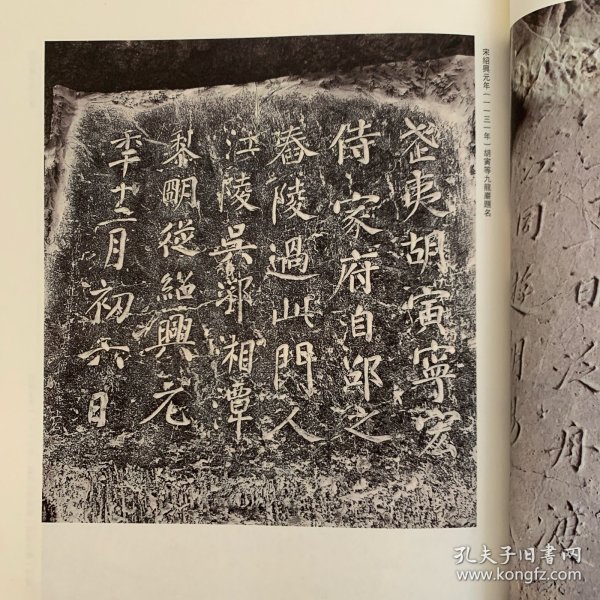 日泛舟渡
江同遊
宋紹興元年(一一三一年)胡寅等九龍巖題名
武夷胡寅寧宏
侍家府自邵之
舂陵過此門人
江陵吳郛湘潭
黎明從紹興元
年十二月初六日
孔夫子旧书网
www.kongfz.com